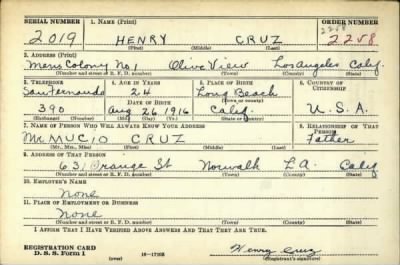 SERIAL NUMBER 1. NAME (Print) ORDER NUMBER
2258
2019 HENRY CRUZ 2258
(First) (Middle) (Last)
2. ADDRESS (Print)
Mens Colony No 1 Olive View Los Angeles Calif.
(Number and street or R. F. D. number) (Town) (County) (State)
3. TELEPHONE 4. AGE IN YEARS 5. PLACE OF BIRTH 6. COUNTRY OF CITIZENSHIP
San Fernando 24 Long Beach
DATE OF BIRTH (Town or county)
390 Aug 26 1916 Calif. U.S.A.
(Exchange) (Number) (Mo.) (Day) (Yr.) (State or country)
7. NAME OF PERSON WHO WILL ALWAYS KNOW YOUR ADDRESS 8. RELATIONSHIP OF THAT PERSON
Mr. MUCIO CRUZ Father
(Mr., Mrs., Miss) (First) (Middle) (Last)
9. ADDRESS OF THAT PERSON
631 Orange St Norwalk L.A. Calif
(Number and street or R. F. D. number) (Town) (County) (State)
10. EMPLOYER'S NAME
None
11. PLACE OF EMPLOYMENT OR BUSINESS
None
(Number and street or R. F. D. number) (Town) (County) (State)
I AFFIRM THAT I HAVE VERIFIED ABOVE ANSWERS AND THAT THEY ARE TRUE.
REGISTRATION CARD
D. S. S. Form 1 (over) 16-17105 Henry Cruz
(Registrant's signature)